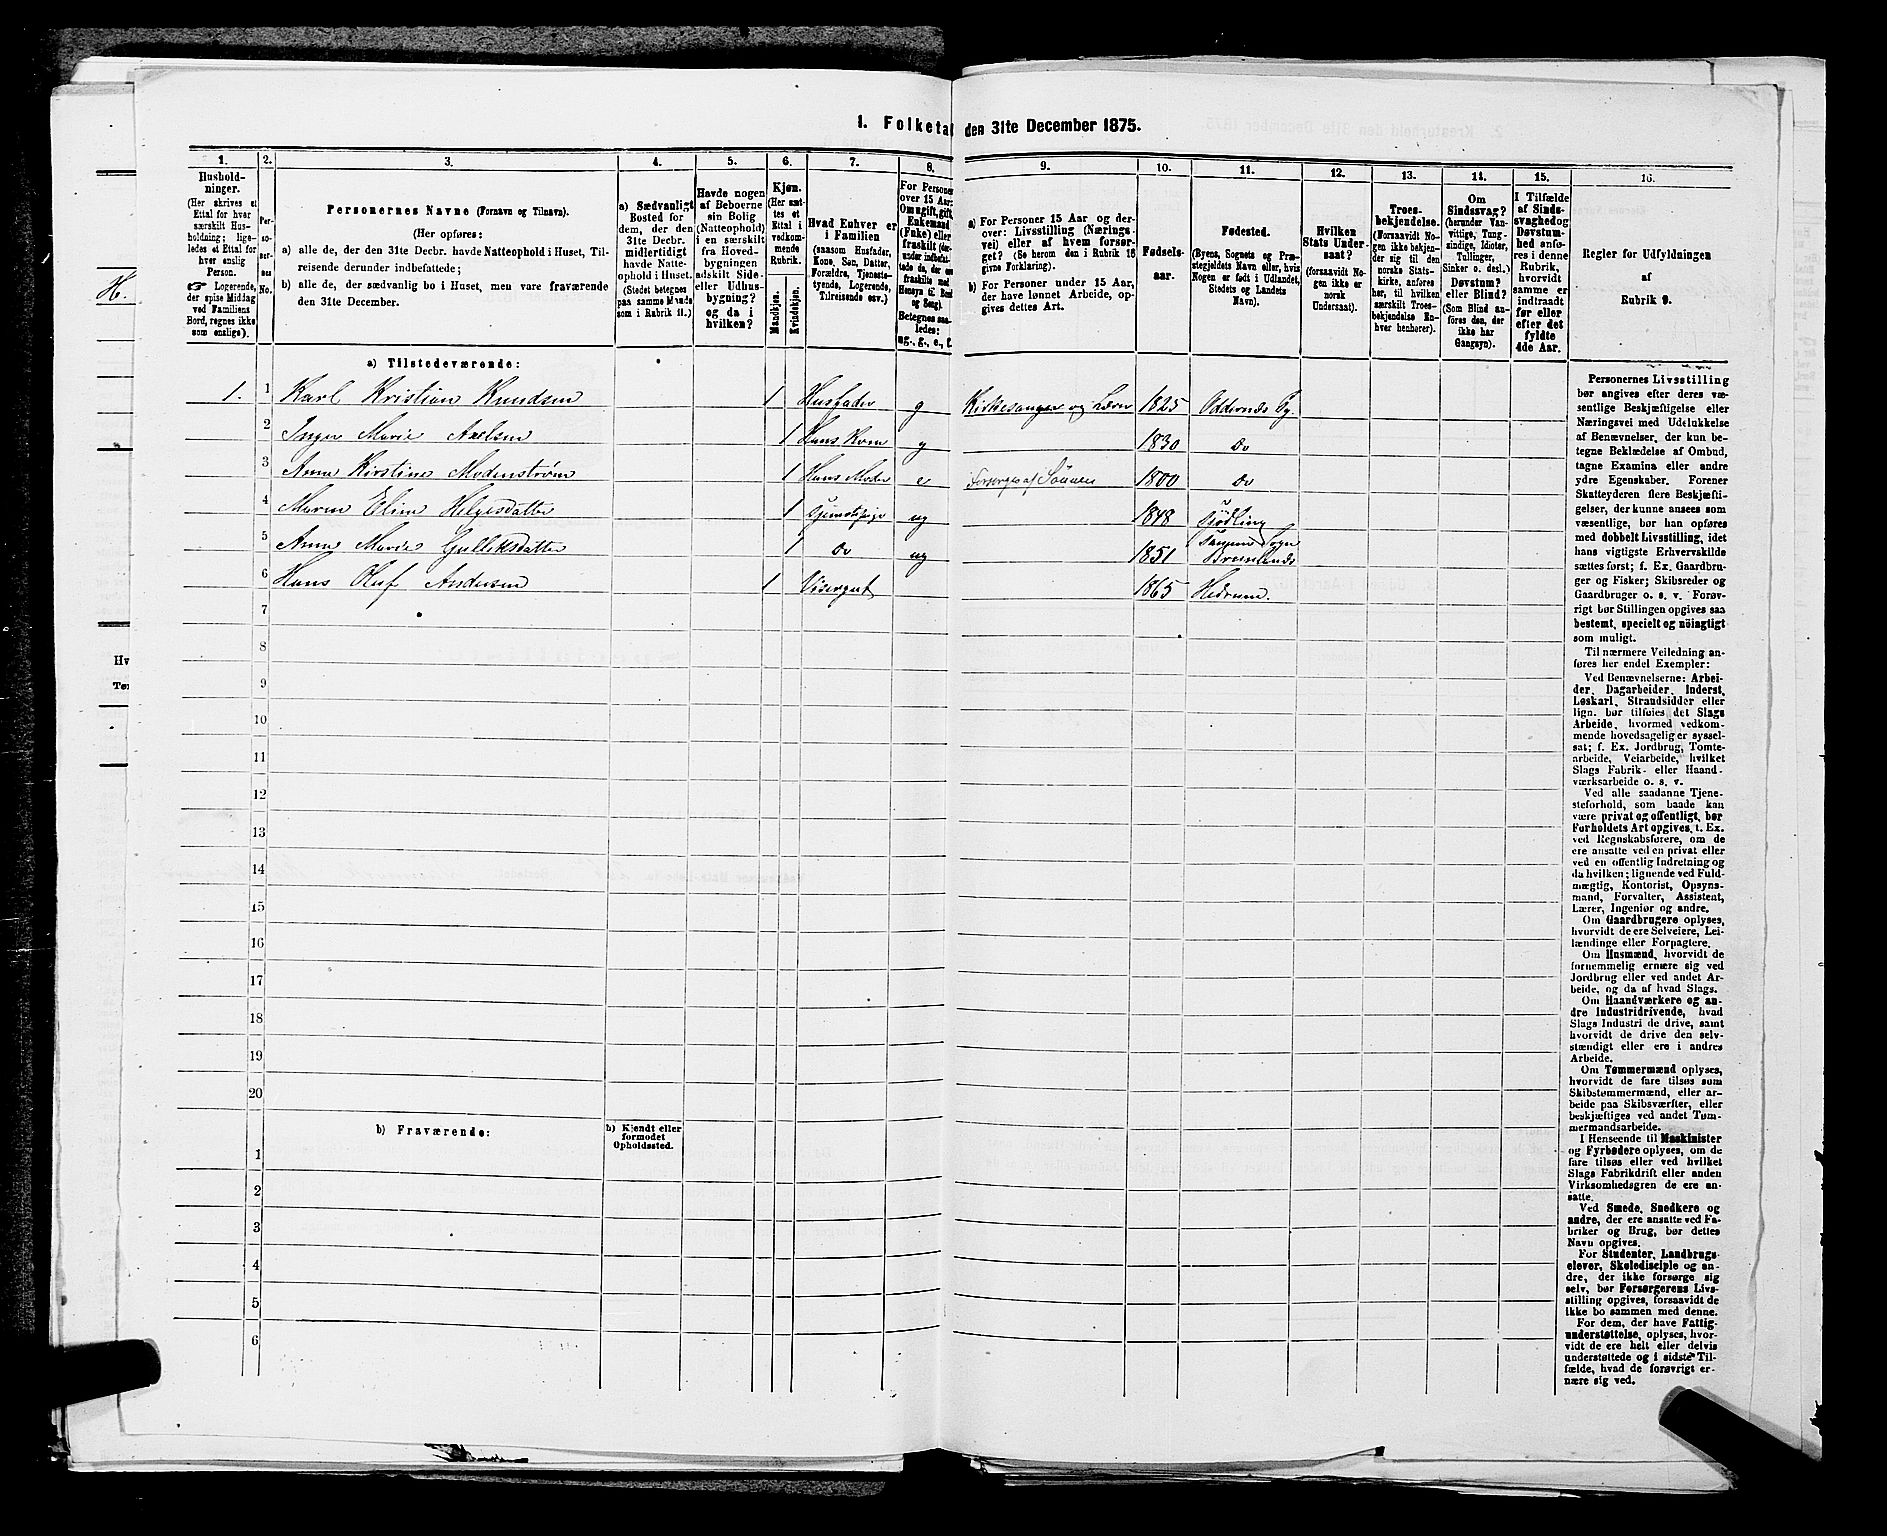 1. Folketal den 31te December 1875.
1. 2. 3. 4. 5. 6. 7. 8. 9. 10. 11. 12. 13. 14. 15. 16.
Hushold-
ninger.
(Her skrives et
Ettal for hver
særskilt Hus-
holdning; lige-
ledes et Ettal for
hver enslig
Person.
☞ Logerende,
der spise Middag
ved Familiens
Bord, regnes ikke
som enslige).
Per-
so-
ner-
nes
No.
Personernes Navne (Fornavn og Tilnavn).
(Her opføres:
a) alle de, der den 31te Decbr. havde Natteophold i Huset, Til-
reisende derunder indbefattede;
b) alle de, der sædvanlig bo i Huset, men vare fraværende
den 31te December.
a) Sædvanligt
Bosted for
dem, der den
31te Decbr.
midlertidigt
havde Natte-
ophold i Huset.
(Stedet betegnes
paa samme Maade
som i Rubrik 11.)
Havde nogen
af Beboerne
sin Bolig
(Natteophold)
i en særskilt
fra Hoved-
bygningen
adskilt Side-
eller Udhus-
bygning?
og da i
hvilken?
Kjøn.
(Her sæt-
tes et
Ettal i
vedkom-
mende
Rubrik.
Mandkjøn.
Kvindekjøn.
Hvad Enhver er
i Familien
(saasom Husfader,
Kone, Søn, Datter,
Forældre, Tjeneste-
tyende, Logerende,
Tilreisende osv.)
For Personer
over 15 Aar:
Om ugift, gift,
Enkemand
(Enke) eller
fraskilt (der-
under indbefat-
tede de, der ere
fraskilte med
Hensyn til Bord
og Seng).
Betegnes saa-
ledes:
ug., g., e., f.
a) For Personer 15 Aar og der-
over: Livsstilling (Nærings-
vei) eller af hvem forsør-
get? (Se herom den i Rubrik 16
givne Forklaring).
b) For Personer under 15 Aar,
der have lønnet Arbeide, op-
gives dettes Art.
Fødsels-
aar.
Fødested.
(Byens, Sognets og Præ-
stegjeldets Navn eller, hvis
Nogen er født i Udlandet,
Stedets og Landets
Navn).
Hvilken
Stats Under-
saat?
(forsaavidt No-
gen ikke er
norsk
Undersaat).
Troes-
bekjendelse.
(Forsaavidt No-
gen ikke bekjen-
der sig til den
norske Stats-
kirke, anføres
her, til hvilken
særskilt Troes-
bekjendelse En-
hver henhører).
Om
Sindssvag?
(herunder Van-
vittige, Tung-
sindige, Idioter,
Tullinger,
Sinker o. desl.)
Døvstum?
eller Blind?
(Som Blind an-
føres den, der
ikke har
Gangsyn).
I Tilfælde
af Sinds-
svaghed og
Døvstum-
hed anfø-
res i denne
Rubrik,
hvorvidt
samme er
indtraadt
før eller
efter det
fyldte
4de Aar.
Regler for Udfyldningen
af
Rubrik 9.
a) Tilstedeværende:
1. 1 Karl Kristian Knudsen 1 Husfader g Kirkesanger og Lærer 1825 Oddernes Pg.
2 Inger Marie Axelsen 1 Hans Kone g 1830 do
3 Anne Kirstine Modenstrøm 1 Hans Moder e Forsørges af Sønnen 1800 do
4 Maren Eline Helgesdatter 1 Tjenestepige ug 1848
5 Anne Marie Gulliksdatter 1 do ug 1851 Sogn Brunlanes
6 Hans Oluf Andersen 1 Visergut 1865 Hedrum.
7
8
9
10
11
12
13
14
15
16
17
18
19
20
b) Fraværende:
b) Kjendt eller
formodet
Opholdssted.
1
2
3
4
5
6
Personernes Livsstilling
bør angives efter deres væ-
sentlige Beskjæftigelse eller
Næringsvei med Udelukkelse
af Benævnelser, der kun be-
tegne Beklædelse af Ombud,
tagne Examina eller andre
ydre Egenskaber. Forener
Skatteyderen flere Beskjæfti-
gelser, der kunne ansees som
væsentlige, bør han opføres
med dobbelt Livsstilling, idet
hans vigtigste Erhvervskilde
sættes først; f. Ex. Gaardbru-
ger og Fisker; Skibsreder og
Gaardbruger o. s. v. Forøv-
rigt bør Stillingen opgives saa
bestemt, specielt og nöiagtigt
som muligt.
Til nærmere Veiledning an-
føres her endel Exempler:
Ved Benævnelserne: Arbei-
der, Dagarbeider, Inderst,
Løskarl, Strandsidder eller
lign. bør tilføies det Slags
Arbeide, hvormed vedkom-
mende hovedsagelig er syssel-
sat; f. Ex. Jordbrug, Tomte-
arbeide, Veiarbeide, hvilket
Slags Fabrik- eller Haand-
værksarbeide o. s. v.
Ved alle saadanne Tjene-
steforhold, som baade kan
være privat og offentligt, bør
Forholdets Art opgives, t. Ex.
ved Regnskabsførere, om de
ere ansatte ved en privat eller
ved en offentlig Indretning og
da hvilken; lignende ved Fuld-
mægtig, Kontorist, Opsyns-
mand, Forvalter, Assistent,
Lærer, Ingeniør og andre.
Om Gaardbrugere oplyses,
hvorvidt de ere Selveiere, Lei-
lændinge eller Forpagtere.
Om Husmænd, hvorvidt de
fornemmelig ernære sig ved
Jordbrug eller ved andet Ar-
beide, og da af hvad Slags.
Om Haandværkere og an-
dre Industridrivende, hvad
Slags Industri de drive, samt
hvorvidt de drive den selv-
stændigt eller ere i andres
Arbeide.
Om Tømmermænd oplyses,
hvorvidt de fare tilsøs som
Skibstømmermænd, eller ar-
beide paa Skibsværfter, eller
beskjæftiges ved andet Tøm-
mermandsarbeide.
I Henseende til Maskinister
og Fyrbødere oplyses, om de
fare tilsøs eller ved hvilket
Slags Fabrikdrift eller anden
Virksomhedsgren de ere an-
satte.
Ved Smede, Snedkere og
andre, der ere ansatte ved Fa-
briker og Brug, bør dettes
Navn opgives.
For Studenter, Landbrugs-
elever, Skoledisciple og an-
dre, der ikke forsørge sig
selv, bør Forsørgerens Livs-
stilling opgives, forsaavidt de
ikke bo sammen med denne.
For dem, der have Fattig-
understøttelse, oplyses, hvor-
vidt de ere helt eller delvis
understøttede og i sidste Til-
fælde, hvad de forøvrigt er-
nære sig ved.